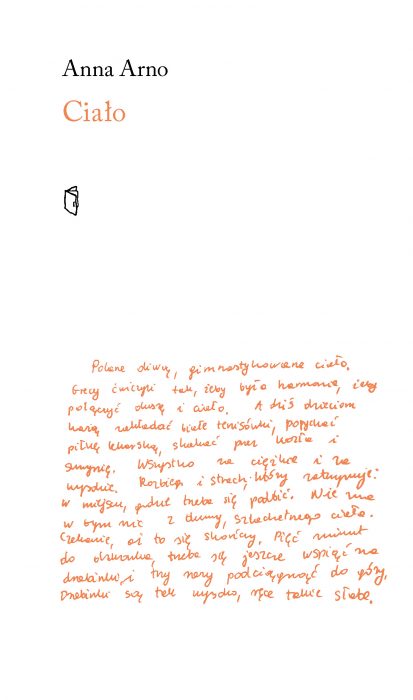 Anna Arno
Ciało
gimnastykowane ciało.
Grecy ćwiczyli tak, żeby była harmonia, żeby
połączyć duszę i ciało. A dziś dzieciom
każą zakładać białe tenisówki, popychać
piłkę lekarską, skakać przez kozła i
skrzynię. Wszystko za ciężkie i za
wysokie. Rozbieg i strach, który zatrzymuje
w miejscu, gdzie trzeba się podbić. Nie ma
w tym nic z dumy, szlachetnego ciała.
Czekanie, aż to się skończy. Pięć minut
do dzwonka, trzeba się jeszcze wspiąć na
drabinki, i trzy razy podciągnąć do góry.
Drabinki są tak wysoko, ręce takie słabe.